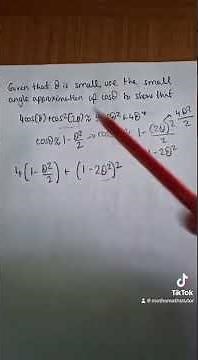 Given that θ is small, use the small
angle approximation of cosθ to show that
4cos(θ)+cos²(2θ)≈ θ²+4θ⁴
4θ²
cosθ≈1-θ²/2 1-(2θ)²/2
1-2θ²
4(1-θ²/2) + (1-2θ²)²
TikTok